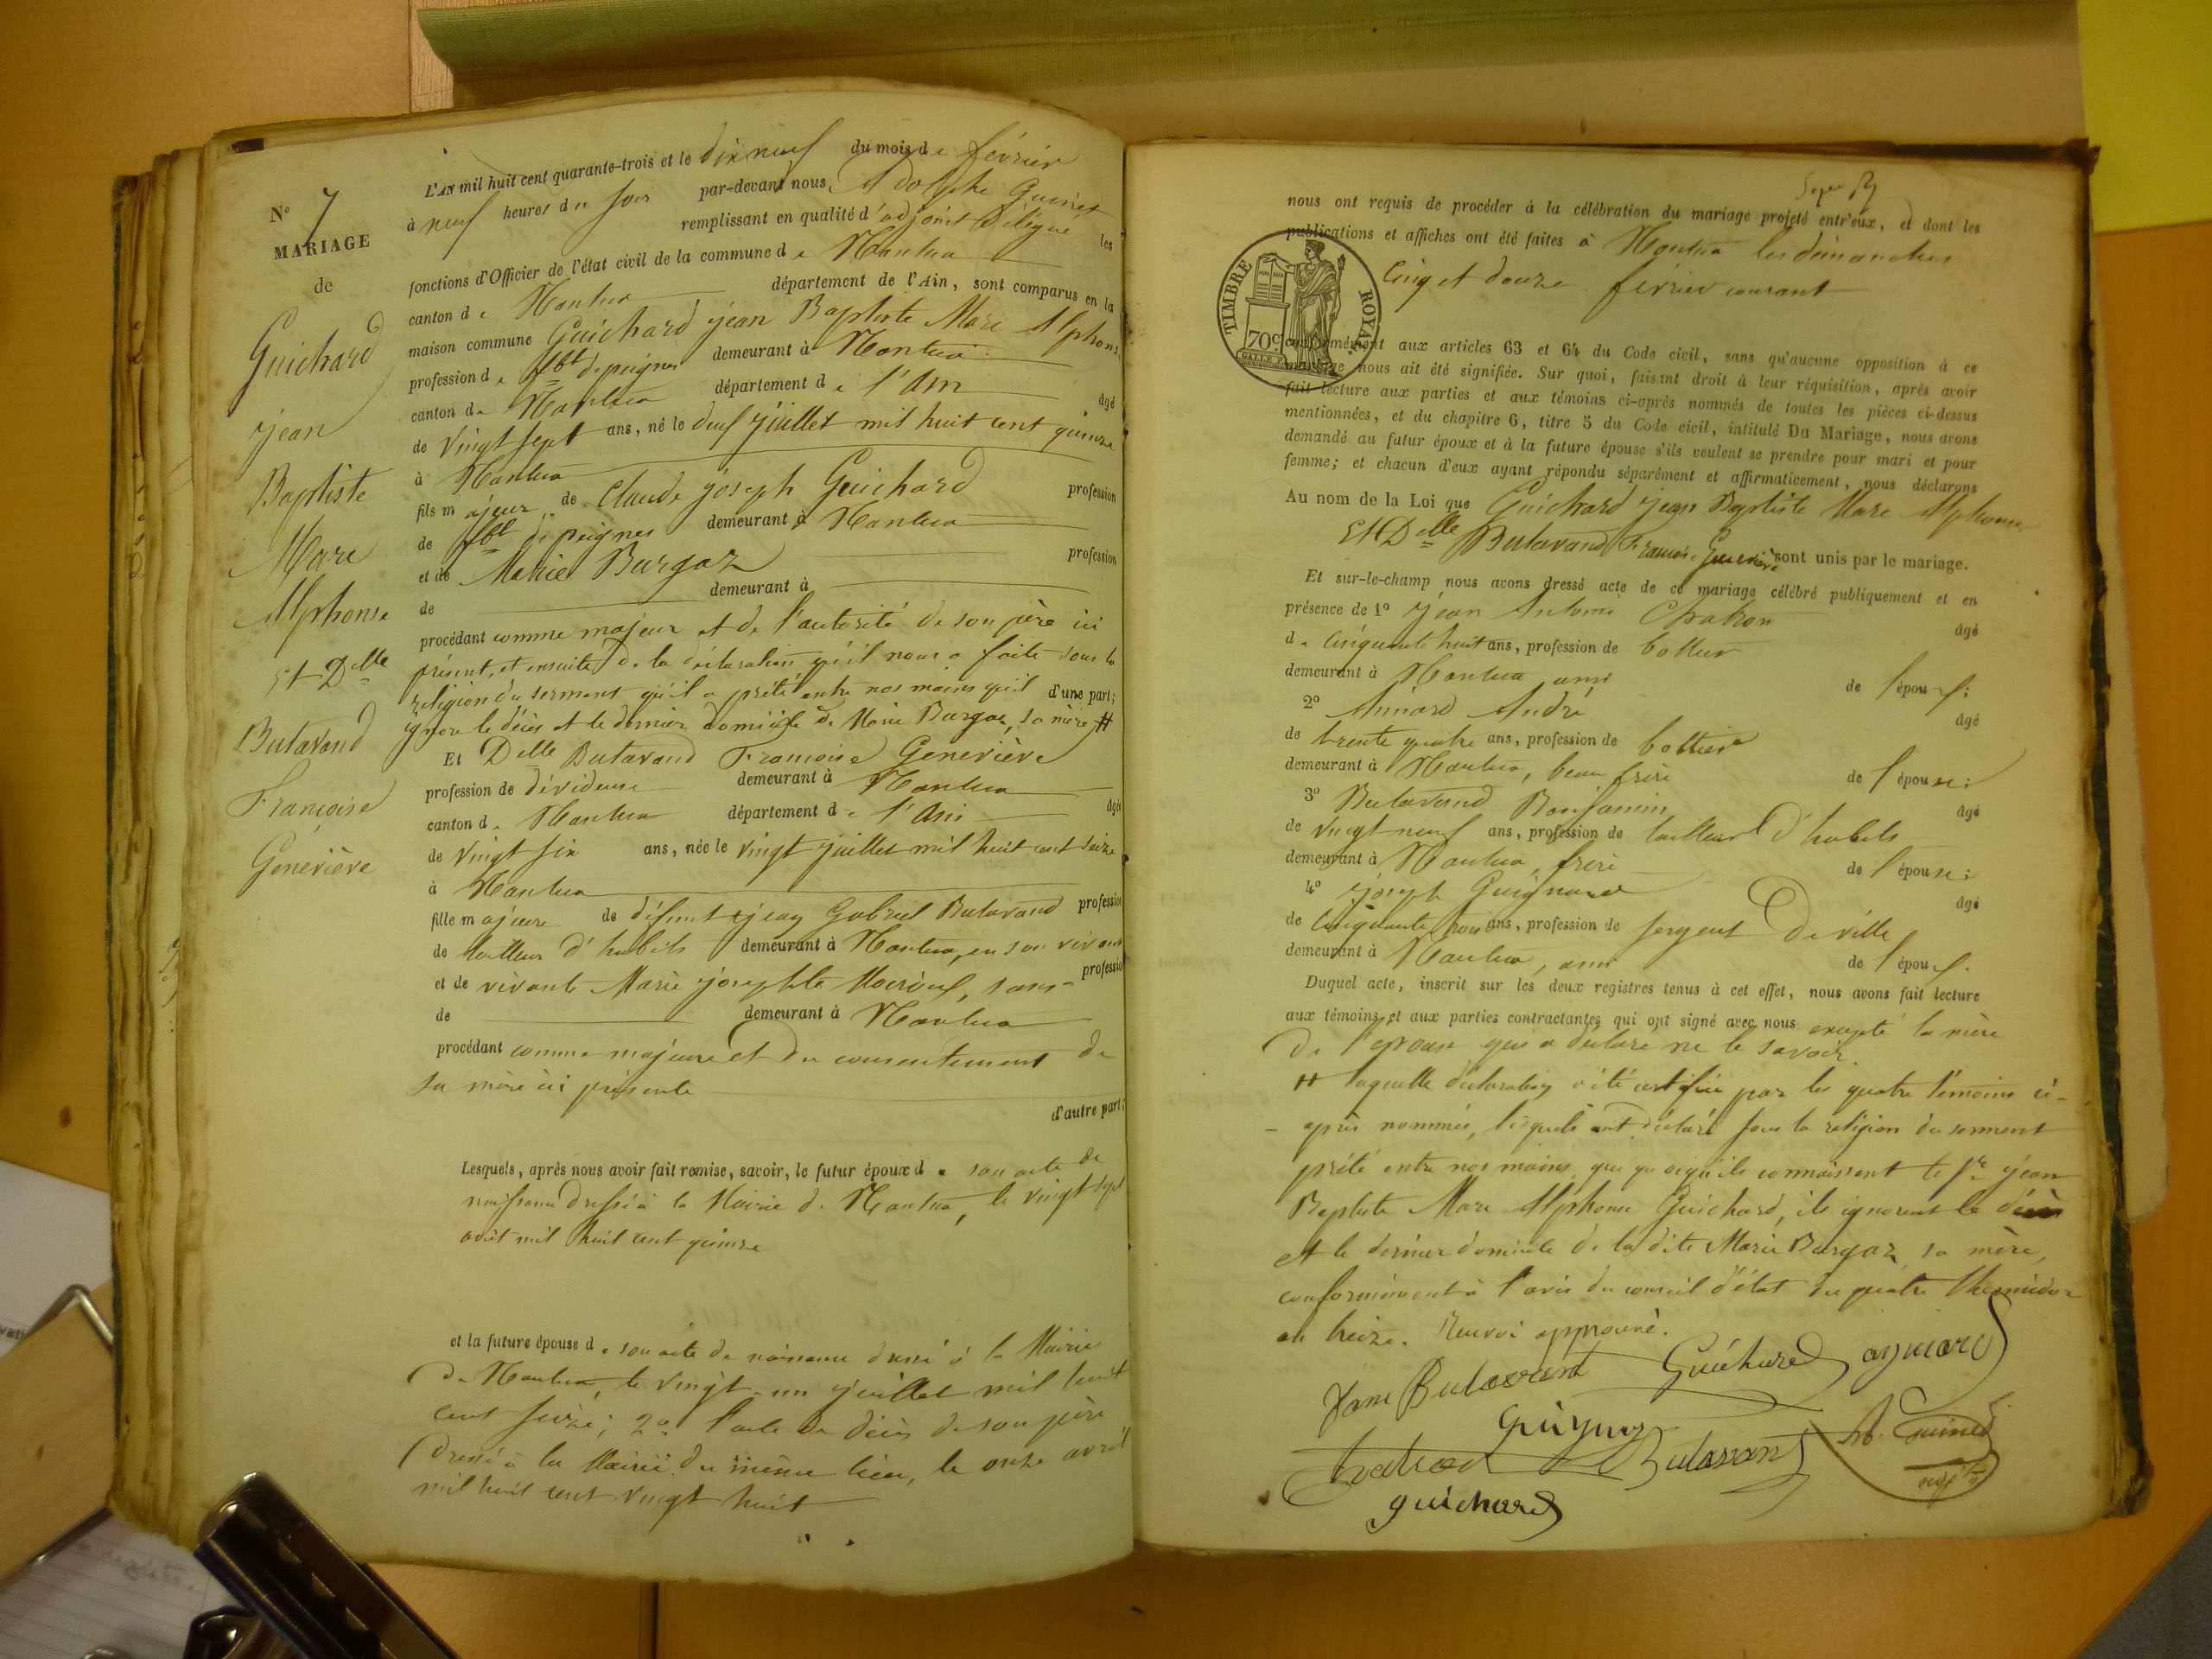 N° 7
MARIAGE
de
Guichard
jean
Baptiste
Marc
Alphonse
Et Delle
Butavand
Françoise
Geneviève
L'AN mil huit cent quarante-trois et le dix neuf du mois de février
à neuf heures du soir par-devant nous, Adolphe Guinet
remplissant en qualité d'adjoint délégué les
fonctions d'Officier de l'état civil de la commune de Nantua
canton de Nantua département de l'Ain, sont comparus en la
maison commune Guichard jean Baptiste Marc Alphonse
profession de fbt de peignes demeurant à Nantua
canton de Nantua département de l'Ain âgé
de vingt sept ans, né le neuf juillet mil huit cent quinze
à Nantua
fils majeur de Claude joseph Guichard profession
de fbt de peignes demeurant à Nantua
et de Marie Burgaz profession
de demeurant à
procédant comme majeur et de l'autorité de son père ici
présent, et ensuite de la déclaration qu'il nous a faite sous la
religion du serment qu'il a prêté entre nos mains qu'il d'une part;
ignore le décès et le dernier domicile de Marie Burgaz, sa mère #
Et Delle Butavand Françoise Geneviève
profession de dévideuse demeurant à Nantua
canton de Nantua département de l'Ain âgée
de vingt six ans, née le vingt juillet mil huit cent seize
à Nantua
fille majeure de défunt jean Gabriel Butavand profession
de tailleur d'habits demeurant à Nantua, en son vivant
et de vivante Marie josephte, sans profession
de demeurant à Nantua
procédant comme majeure et du consentement de
sa mère ici présente
d'autre part;
Lesquels, après nous avoir fait remise, savoir, le futur époux de son acte de
naissance dressé à la Mairie de Nantua, le vingt sept
août mil huit cent quinze
et la future épouse de son acte de naissance dressé à la Mairie
de Nantua, le vingt-un juillet mil huit
cent seize; 2° l'acte de décès de son père
dressé à la Mairie du même lieu, le onze avril
mil huit cent vingt huit
nous ont requis de procéder à la célébration du mariage projeté entr'eux, et dont les
publications et affiches ont été faites à Nantua les dimanches
cinq et douze février courant
TIMBRE ROYAL
70c
conformément aux articles 63 et 64 du Code civil, sans qu'aucune opposition à ce
mariage nous ait été signifiée. Sur quoi, faisant droit à leur réquisition, après avoir
fait lecture aux parties et aux témoins ci-après nommés de toutes les pièces ci-dessus
mentionnées, et du chapitre 6, titre 5 du Code civil, intitulé Du Mariage, nous avons
demandé au futur époux et à la future épouse s'ils veulent se prendre pour mari et pour
femme; et chacun d'eux ayant répondu séparément et affirmativement, nous déclarons
Au nom de la Loi que Guichard jean Baptiste Marc Alphonse
Et Delle Butavand Françoise Geneviève sont unis par le mariage.
Et sur-le-champ nous avons dressé acte de ce mariage célébré publiquement et en
présence de 1° jean Antoine Chatron âgé
de cinquante huit ans, profession de bottier
demeurant à Nantua ami de l'époux;
2° Aimard André âgé
de trente quatre ans, profession de bottier
demeurant à Nantua, beau frère de l'épouse;
3° Butavand Benjamin âgé
de vingt neuf ans, profession de tailleur d'habits
demeurant à Nantua, frère de l'épouse;
4° joseph Guignard âgé
de cinquante trois ans, profession de sergent de ville
demeurant à Nantua, ami de l'époux.
Duquel acte, inscrit sur les deux registres tenus à cet effet, nous avons fait lecture
aux témoins et aux parties contractantes qui ont signé avec nous excepté la mère
de l'épouse qui a déclaré ne le savoir.
# laquelle déclaration a été certifiée par les quatre témoins ci-
- après nommés, lesquels ont déclaré sous la religion du serment
prêté entre nos mains, que quoiqu'ils connaissent le Sr jean
Baptiste Marc Alphonse Guichard, ils ignorent le décès
et le dernier domicile de la dite Marie Burgaz sa mère,
conformément à l'avis du conseil d'état du quatre thermidor
an treize. Renvoi approuvé.
Butavand Guichard aymard
Guignard
Chatron Butavand Ad. Guinet
adjt
guichard